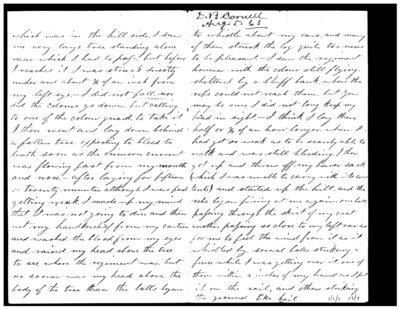 which was in the hill side, I saw
one very large tree standing alone
near which I had to pass, but before
I reached it I was struck directly
under and about 3/4 of an inch from
my left eye. I did not fall nor
did the colours go down but calling
to one of the colour guard to take it
I then went and lay down behind
a fallen tree expecting to bleed to
death soon as the crimson current
was flowing fast from my mouth
and nose - after laying for fifteen
or twenty minutes although I was fast
getting weak I made up my mind
that I was not going to die and then
wet my handkerchief from my canteen
and washed the blood from my eyes
and raised my head above the tree
to see where the regiment was, but
no sooner was my head above the
body of the tree than the balls began
D. B. Cornell
Aug
to whistle about my ears, and many
of them struck the log quite too near
to be pleasant - I saw the regiment
however with the colour still flying
sheltered by a bluff bank where the
rebs could not reach them, but you
may be sure I did not long keep my
head in sight - I think I lay there
half or 3/4 of an hour longer when I
had got so weak as to be scarcely able to
walk and was still bleeding, I then
got up and threw off my haversack
(which I was unable to carry with its con
tents) and started up the hill, and the
rebs began firing at me again one ball
passing through the skirt of my coat
another passing so close to my left ear as
for me to feel the wind from it as it
whistled by several balls striking a
fence while I was getting over it one of
them within 4 inches of my hand as I put
it on the rail, and others striking
the ground like hail